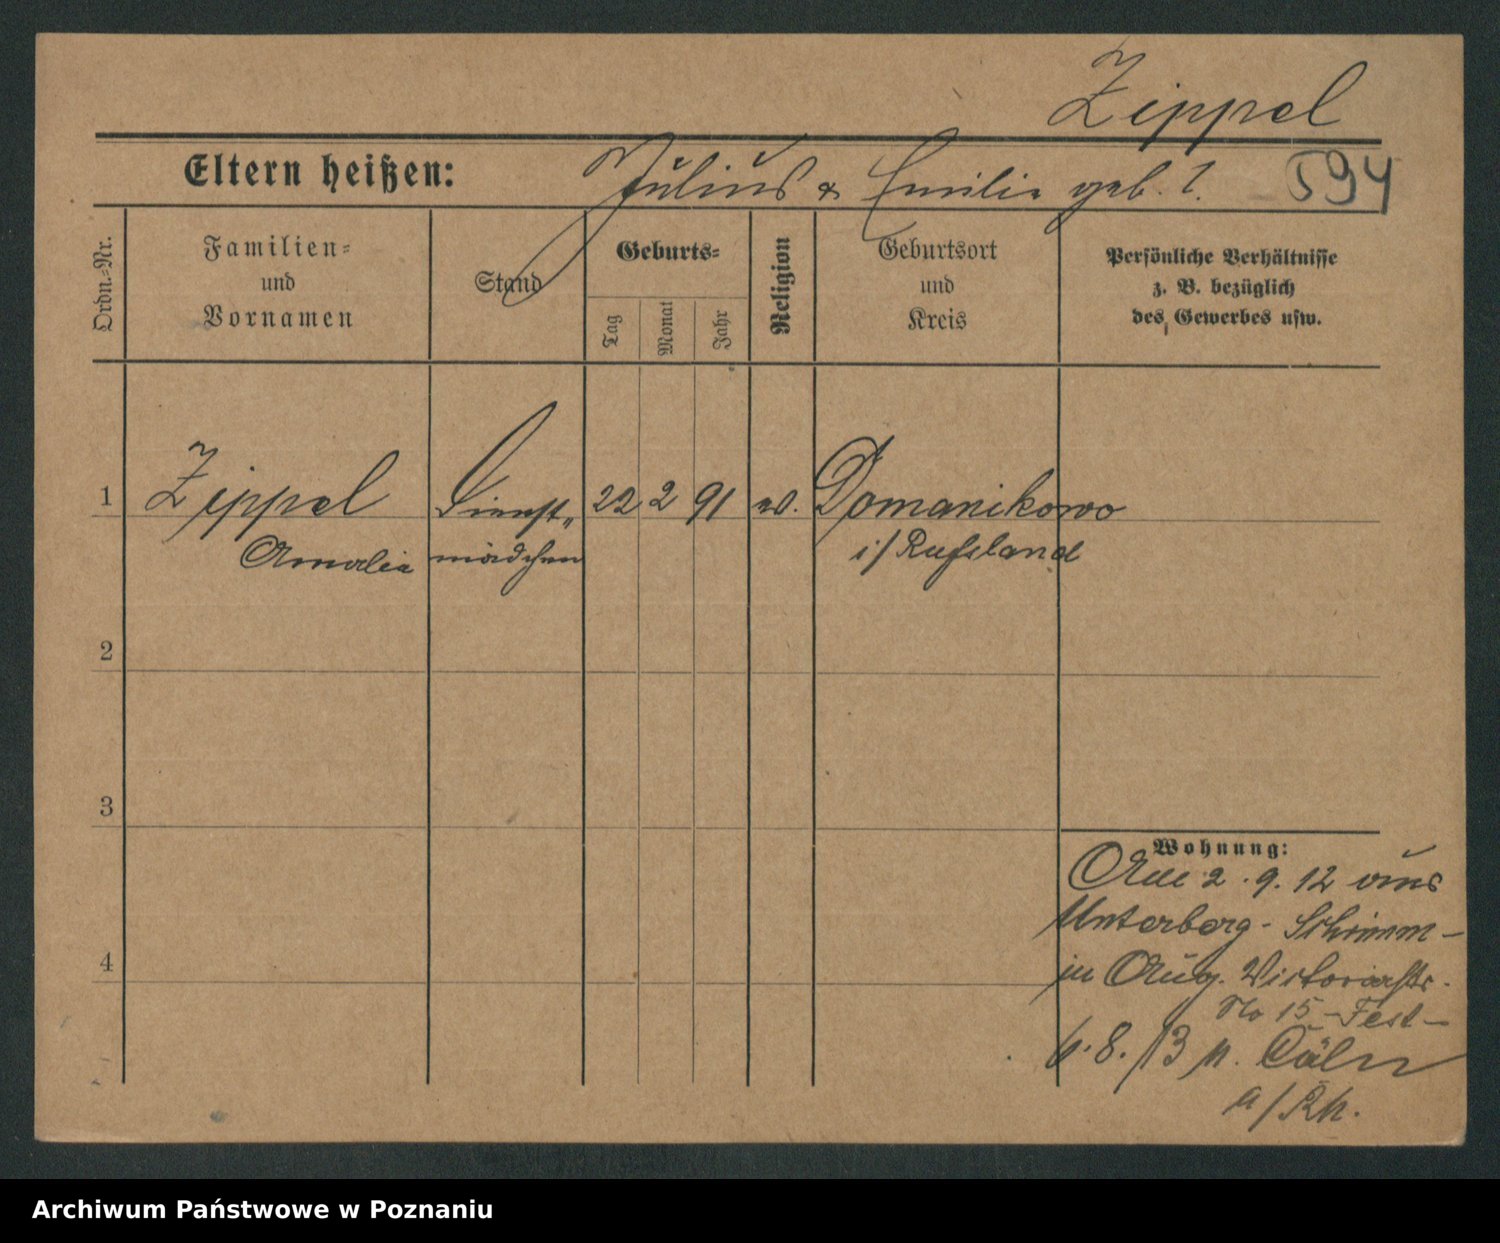 Zippel
Eltern heißen: Julius & Emilie geb. ?. 594
Ordn.-Nr.
Familien-
und
Vornamen
Stand
Geburts-
Tag
Monat
Jahr
Religion
Geburtsort
und
Kreis
Persönliche Verhältnisse
z. B. bezüglich
des Gewerbes usw.
1 Zippel Dienst- 22 2 91 ev. Domanikowo
Amalie mädchen i/Rußland
2
3
Wohnung:
Am 2.9.12 aus
Unterberg-Schrimm-
in Aug. Victoriastr.
No 15-Fest-
4
6.8.13 n. Cöln
a/Rh.
Archiwum Państwowe w Poznaniu